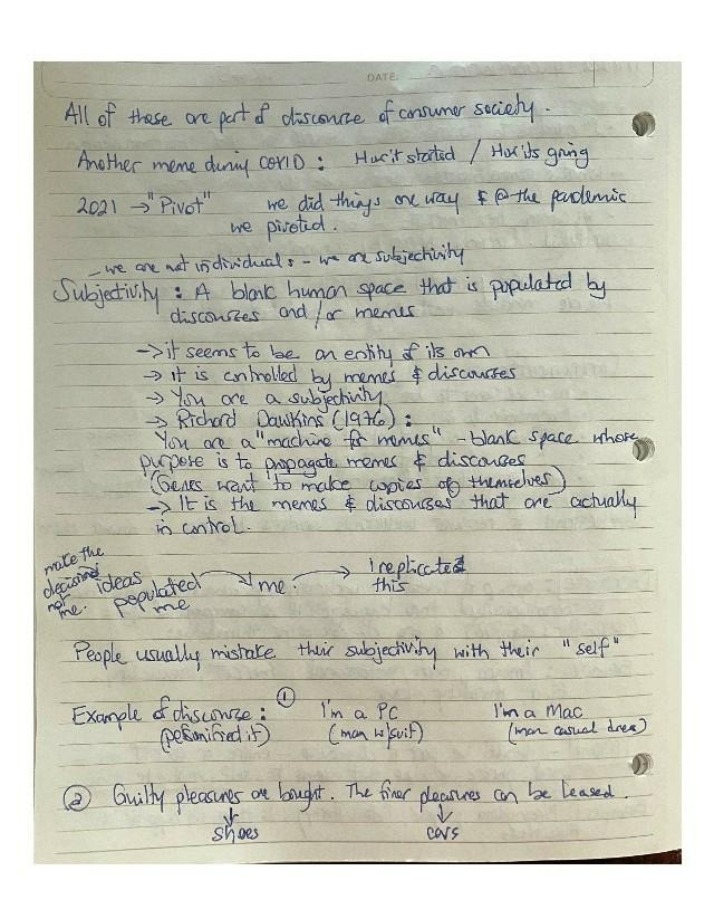 DATE:
All of these are part of discourse of consumer society.
Another meme during COVID : How it started / How its going
2021 → "Pivot" we did things one way & @ the pandemic
we pivoted.
- we are not individuals - we are subjectivity
Subjectivity : A blank human space that is populated by
discourses and/or memes
→ it seems to be an entity of its own
→ it is controlled by memes & discourses
→ You are a subjectivity
→ Richard Dawkins (1976) :
You are a "machine for memes" - blank space whose
purpose is to propagate memes & discourses
(Genes want to make copies of themselves)
→ It is the memes & discourses that are actually
in control.
make the
decisions
not
me.
ideas
populated
me
→ me. → I replicated
this
People usually mistake their subjectivity with their "self"
Example of discourse : ① I'm a PC I'm a Mac
(personified it) (man w/suit) (man casual dress)
② Guilty pleasures are bought. The finer pleasures can be leased.
↓ ↓
shoes cars